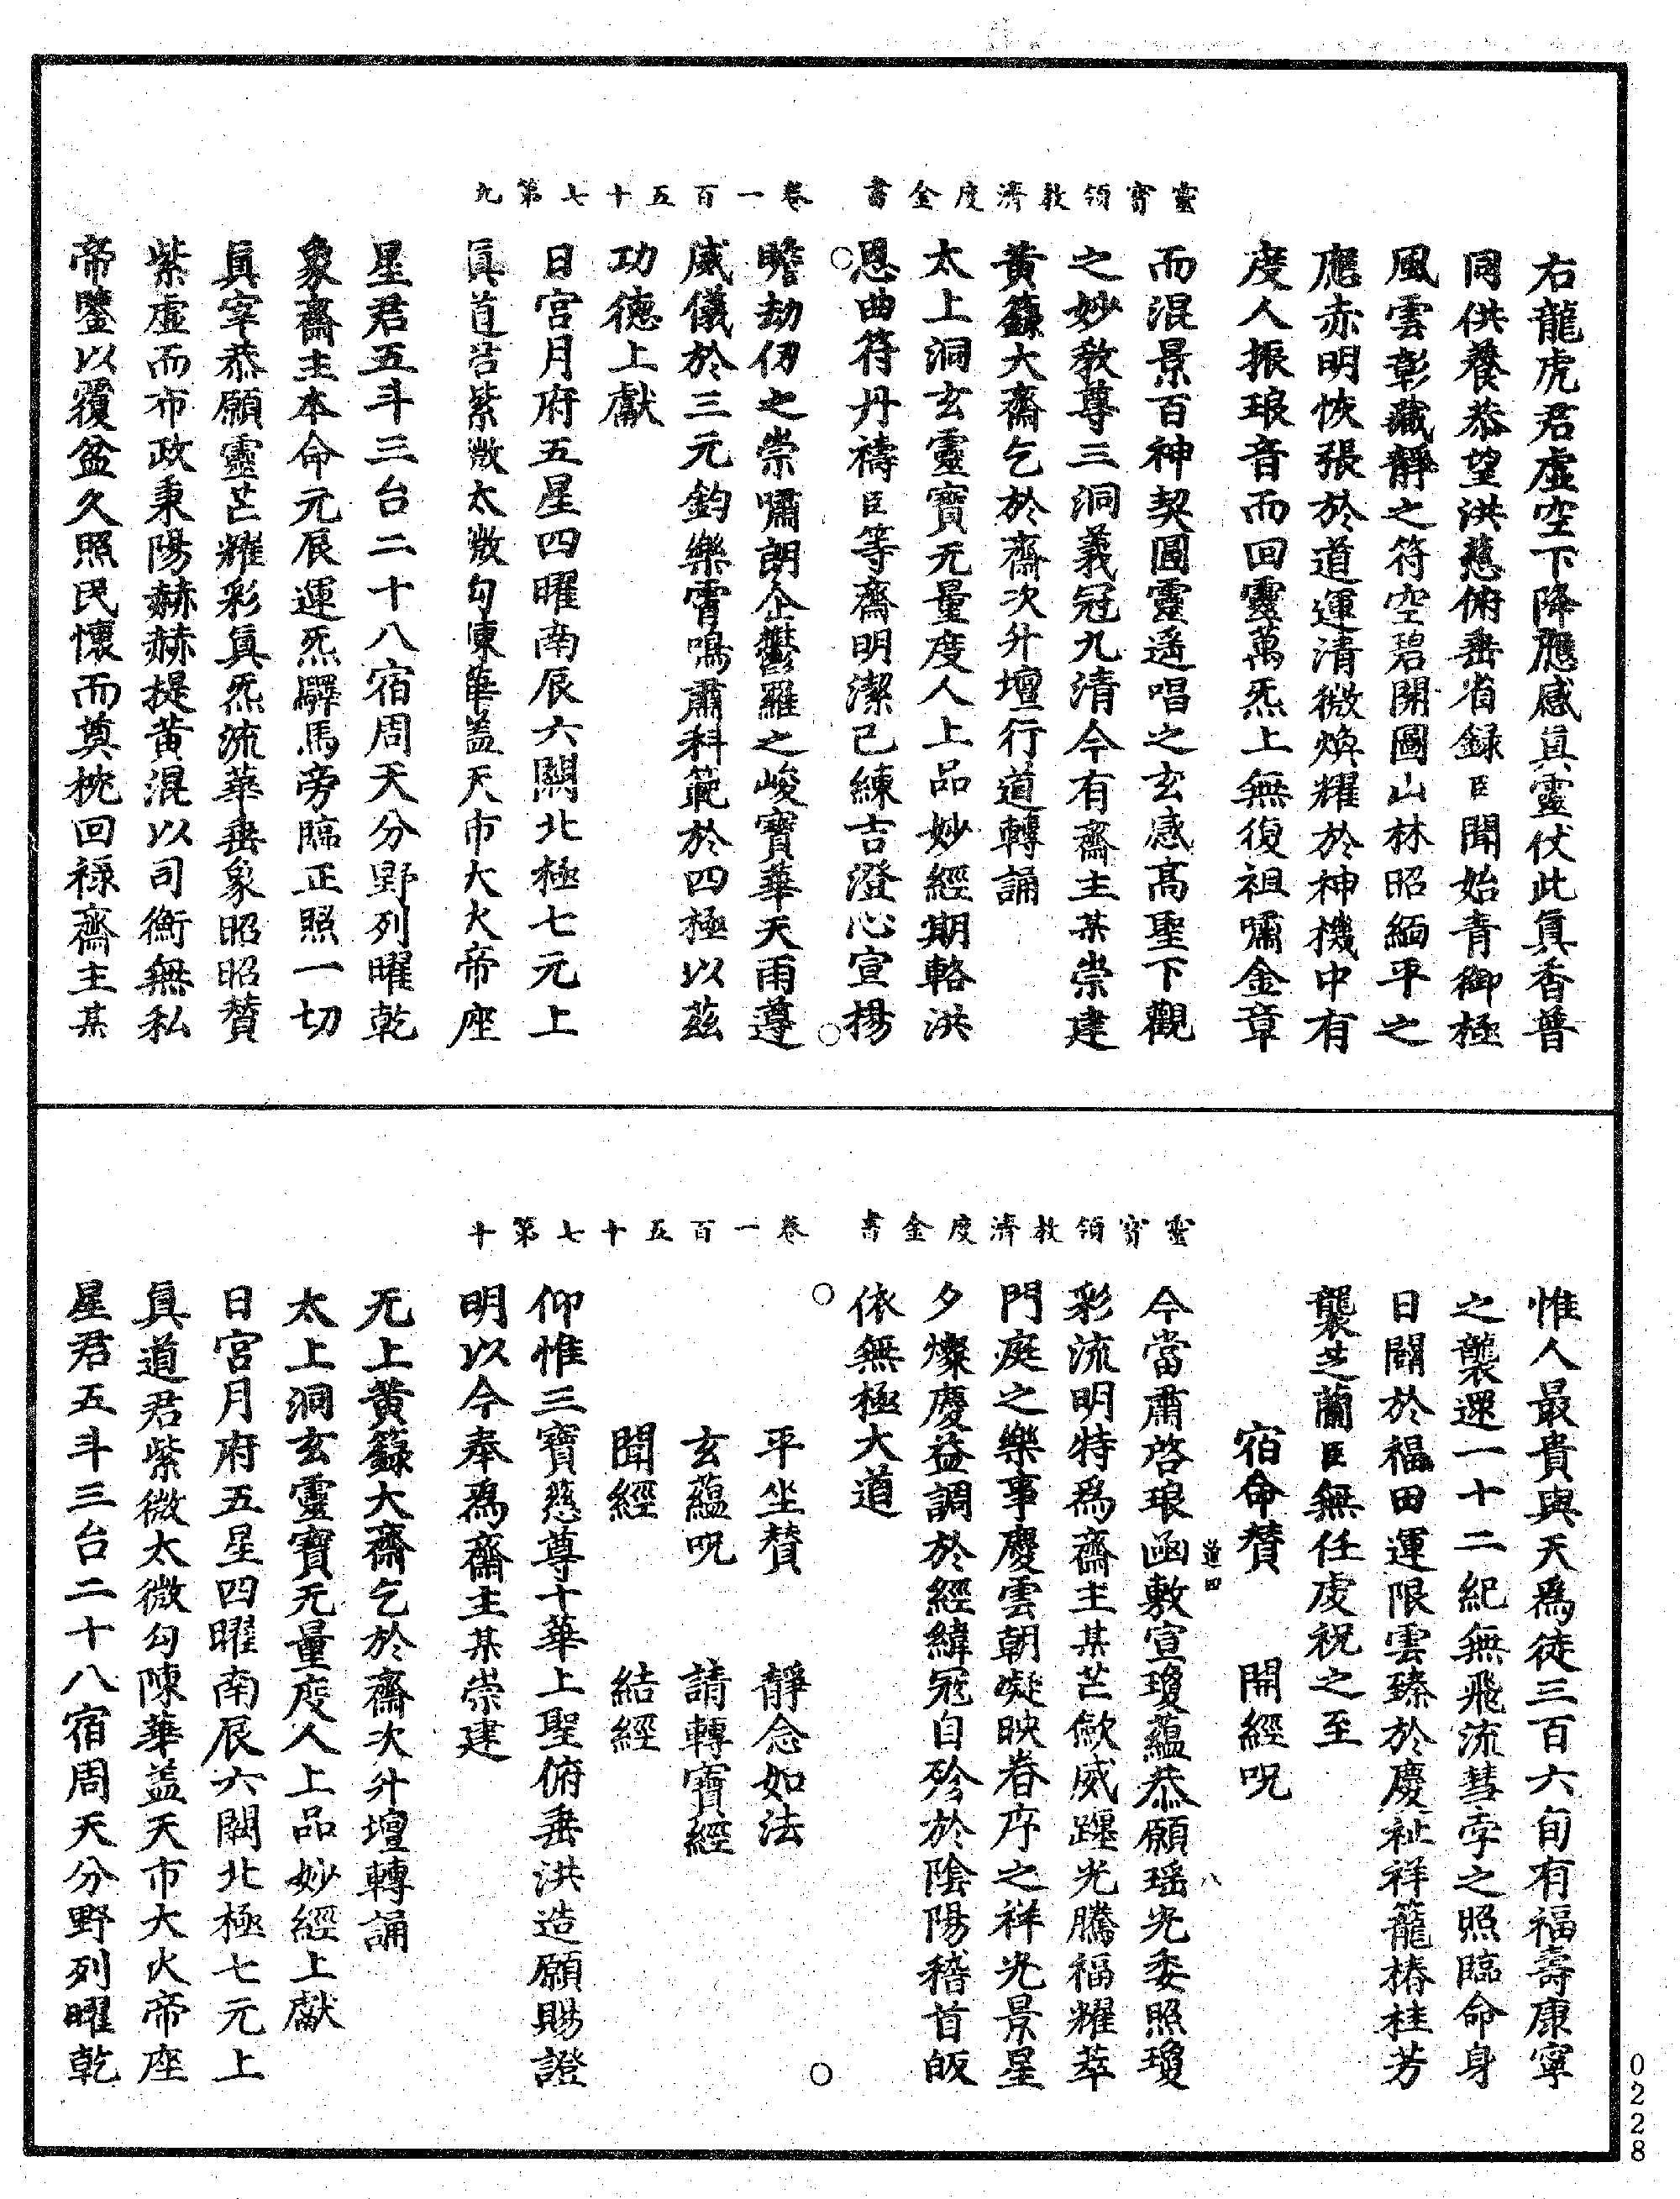 靈寶領教濟度金書　卷一百五十七第九
右龍虎君虛空下降應感真靈仗此真香普
同供養恭望洪慈俯垂省録臣聞始青御極
風雲彰藏靜之符空碧開圖山林昭緬平之
應赤明恢張於道運清微煥耀於神機中有
度人振琅音而回靈萬炁上無復祖嘯金章
而混景百神契圓靈遥唱之玄感高聖下觀
之妙敎尊三洞義冠九清今有齋主某崇建
黃籙大齋乞於齋次升壇行道轉誦
太上洞玄靈寶无量度人上品妙經期輅洪
恩曲符丹禱臣等齋明潔己練吉澄心宣揚
瞻劫仞之崇嘯朗企欝羅之峻寶華天雨遵
威儀於三元鈞樂霄鳴肅科範於四極以茲
功德上獻
日宮月府五星四曜南辰六闕北極七元上
真道君紫微太微勾陳華蓋天市大火帝座
星君五斗三台二十八宿周天分野列曜乾
象齋主本命元辰運炁驛馬旁臨正照一切
真宰恭願靈芒耀彩真炁流華垂象昭昭賛
紫虛而布政秉陽赫赫提黃混以司衡無私
帝鑒以覆盆久照民懷而奠枕回禄齋主某
靈寶領教濟度金書　卷一百五十七第十
惟人最貴與天爲徒三百六旬有福壽康寧
之襲還一十二紀無飛流彗孛之照臨命身
日闢於福田運限雲臻於慶祉祥籠椿桂芳
襲芝蘭臣無任虔祝之至
宿命賛　開經呪
道四　八
今當肅啓琅函敷宣瓊蘊恭願瑶光委照瓊
彩流明特爲齋主某芒歛威躔光騰福耀萃
門庭之樂事慶雲朝凝映眷序之祥光景星
夕燦慶益調於經緯冠自殄於陰陽稽首皈
依無極大道
平坐賛　靜念如法
玄蘊呪　請轉寶經
聞經　結經
仰惟三寶慈尊十華上聖俯垂洪造願賜證
明以今奉爲齋主某崇建
无上黃籙大齋乞於齋次升壇轉誦
太上洞玄靈寶无量度人上品妙經上獻
日宮月府五星四曜南辰六闕北極七元上
真道君紫微太微勾陳華蓋天市大火帝座
星君五斗三台二十八宿周天分野列曜乾
0228